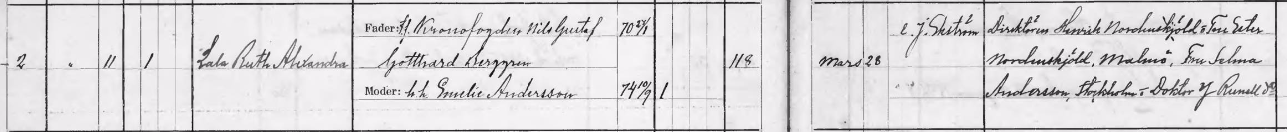 Fader: H. Kronofogden Nils Gustaf 70 27/1 C. J. Ekström Direktören Henrik Nordenskjöld o Fru Ester
2 " 11 1 Lala Ruth Alexandra Gotthard Berggren 118 Mars 28 Nordenskjöld, Malmö, Fru Selma
Moder: h.h. Emelie Andersson 74 10/9 1 Andersson, Stockholm o Doktor Runell